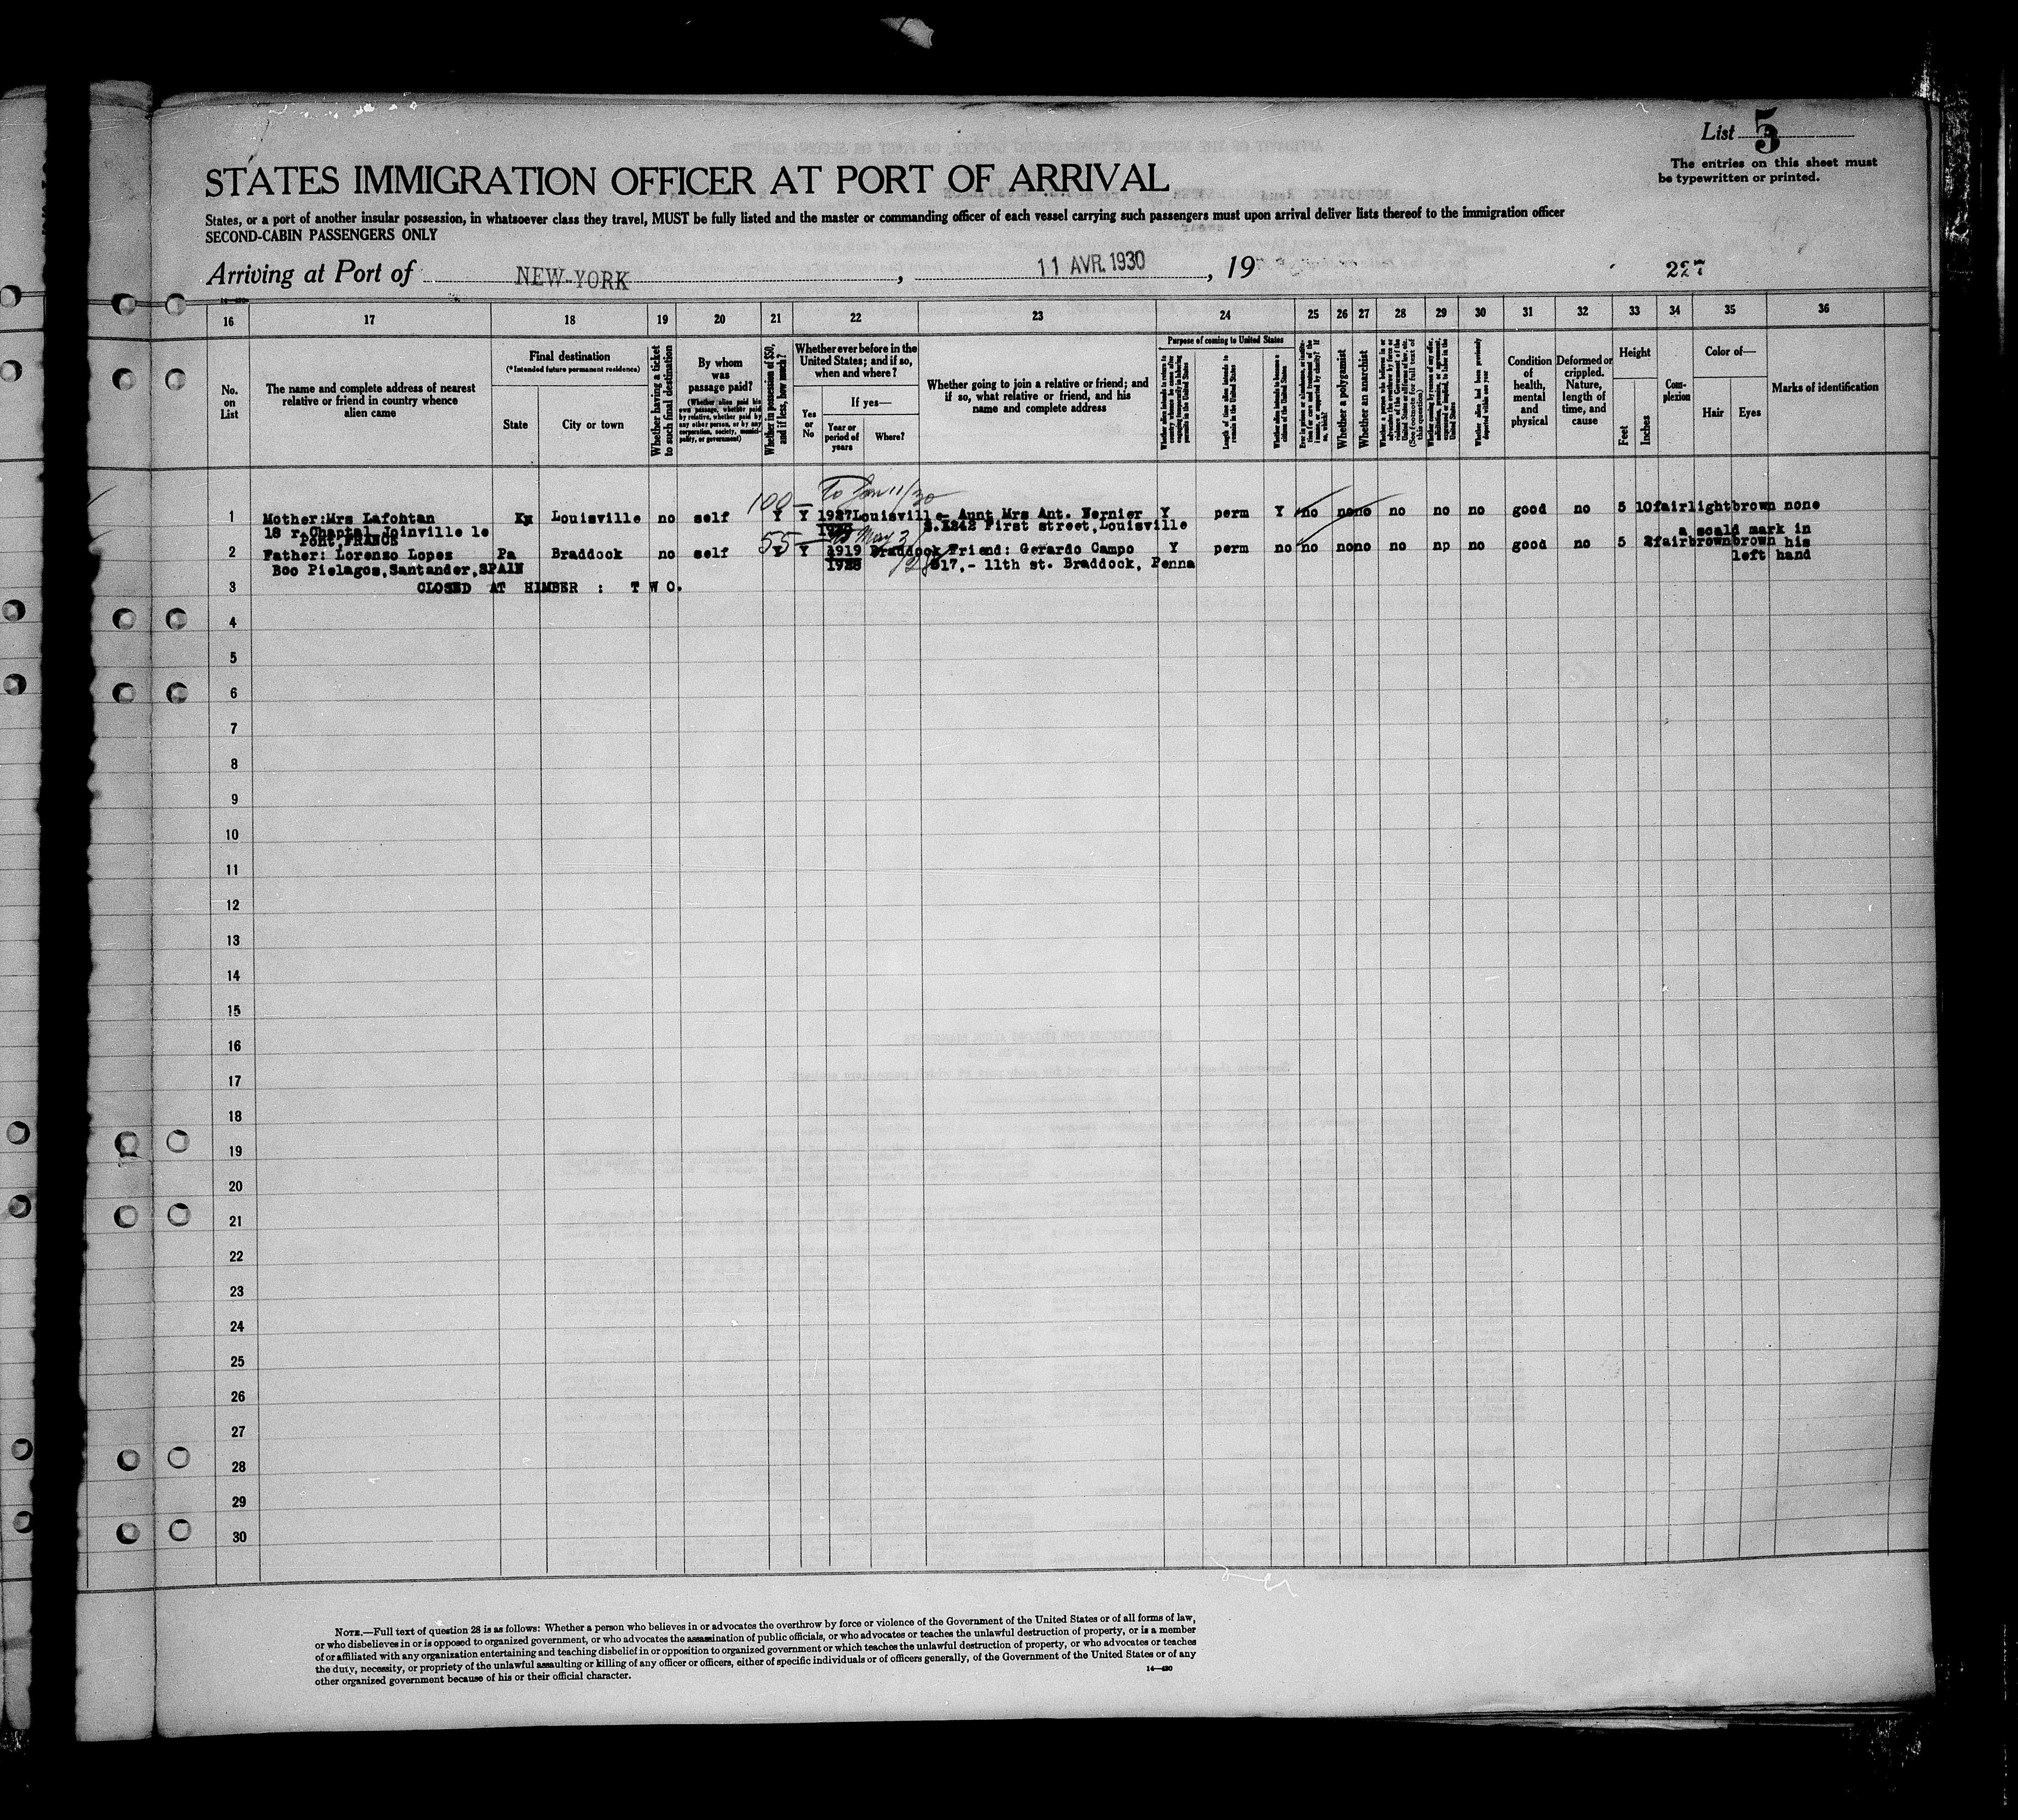 List 5
The entries on this sheet must
be typewritten or printed.
STATES IMMIGRATION OFFICER AT PORT OF ARRIVAL
States, or a port of another insular possession, in whatsoever class they travel, MUST be fully listed and the master or commanding officer of each vessel carrying such passengers must upon arrival deliver lists thereof to the immigration officer
SECOND-CABIN PASSENGERS ONLY
Arriving at Port of NEW-YORK, 11 AVR. 1930, 19
227
16 17 18 19 20 21 22 23 24 25 26 27 28 29 30 31 32 33 34 35 36
No. on List
The name and complete address of nearest relative or friend in country whence alien came
Final destination
(*Intended future permanent residence)
State
City or town
Whether having a ticket to such final destination
By whom was passage paid?
(Whether alien paid his own passage, whether paid by relative, whether paid by any other person, or by any corporation, society, municipality, or government)
Whether in possession of $50, and if less, how much?
Whether ever before in the United States; and if so, when and where?
Yes or No
If yes—
Year or period of years
Where?
Whether going to join a relative or friend; and if so, what relative or friend, and his name and complete address
Purpose of coming to United States
Length of time alien intends to remain in the United States
Whether alien intends to become a citizen of the United States
Whether a polygamist
Whether an anarchist
Whether alien had been previously deported within one year
Condition of health, mental and physical
Deformed or crippled. Nature, length of time, and cause
Height
Feet
Inches
Complexion
Color of—
Hair
Eyes
Marks of identification
100 — To Jan 11/30
1 Mother:Mrs Lafontan Louisville no self Y Y 1927 Louisville- Aunt Mrs Ant. Vernier Y perm Y no no no no no no good no 5 10 fair light brown none
18 r.Chaptal Joinville le 1242 First street,Louisville
Pont,FRANCE
55 — May 3/28
a scald mark in
2 Father: Lorenzo Lopes Pa Braddock no self Y Y 1919 Braddock Friend: Gerardo Campo Y perm no no no no no np no good no 5 2 fair brown brown his
Boo Pielagos,Santander,SPAIN 1928 617,- 11th st. Braddock, Penna left hand
3 CLOSED AT HIMBER : T W O.
4
5
6
7
8
9
10
11
12
13
14
15
16
17
18
19
20
21
22
23
24
25
26
27
28
29
30
NOTE.—Full text of question 28 is as follows: Whether a person who believes in or advocates the overthrow by force or violence of the Government of the United States or of all forms of law,
or who disbelieves in or is opposed to organized government, or who advocates the assassination of public officials, or who advocates or teaches the unlawful destruction of property, or is a member
of or affiliated with any organization entertaining and teaching disbelief in or opposition to organized government or which teaches the unlawful destruction of property, or who advocates or teaches
the duty, necessity, or propriety of the unlawful assaulting or killing of any officer or officers, either of specific individuals or of officers generally, of the Government of the United States or of any
other organized government because of his or their official character.
14—430